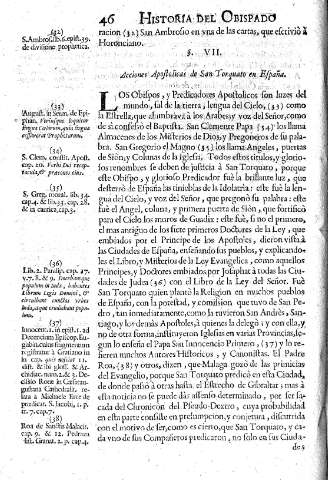 46 HISTORIA DEL OBISPADO
racion (32) San Ambrosio en vna de las cartas, que escriviò à
Horonciano.
§. VII.
Acciones Apostolicas de San Torquato en España.
LOS Obispos, y Predicadores Apostolicos son luzes del
mundo, sal de la tierra, lengua del Cielo, (33) como
la Estrella, que alumbrava à los Arabes, y voz del Señor, como
de sì confessò el Bapuista. San Clemente Papa (34) los llama
Almacenes de los Misterios de Dios, y Pregoneros de su pala-
bra. San Gregorio el Magno (35) los llama Angeles, puertas
de Siòn, y Colunas de la Iglesia. Todos estos titulos, y glorio-
los renombres se deben de justicia à San Torquato, porque
este Obispo, y glorioso Predicador fuè la brillante luz, que
desterrò de España las tinieblas de la Idolatria: este fuè la len-
gua del Cielo, y voz del Señor, que pregonò su palabra: este
fuè el Angel, coluna, y primera puerta de Siòn, que fortificò
para el Cielo los muros de Guadix: este fuè, sino el primero,
el mas antiguo de los siete primeros Doctores de la Ley, que
embiados por el Principe de los Apostoles, dieron vista à las
Ciudades de España, enseñando sus pueblos, y explicando-
les el Libro, y Misterios de la Ley Evangelica, como aquellos
Principes, y Doctores embiados por Josaphat à todas las Ciu-
dades de Juda; (36) con el Libro de la Ley del Señor. Fuè
San Torquato quien plantò la Religion en muchos pueblos
de España, con la potestad, y comision que tuvo de San Pe-
dro, tan inmediatamente, como la tuvieron San Andrès, San-
tiago, y los demàs Apostoles, à quienes la delegò; y con ella, y
no de otra forma, instituyeron Iglesias en varias Provincias, se-
gun lo enseña el Papa San Inocencio Primero, (37) y lo re-
fieren muchos Autores Historicos, y Canonistas. El Padre
Roa, (38) y otros, dizen, que Malaga gozò de las primicias
del Evangelio, porque San Torquato predicò en esta Ciudad,
de donde passò à otras hasta el Estrecho de Gibraltar; mas à
esta noticia no se puede dàr assenso determinado, por ser sa-
cada del Chronicon del Pseudo-Dextro, cuya probabilidad
en esta parte consiste en presumpcion, y conjetura, discurrida
con el motivo de ser, como es cierto, que San Torquato, y ca-
da vno de sus Compañeros predicaron, no solo en sus Ciuda-
des
(32)
S. Ambros. lib. 6. epist. 39.
de divisione
(33)
(34)
S. Clem. constit. Apost.
cap.
(35)
S. Greg. moral. lib. 34.
cap. 4. & lib. 33. cap. 28.
(36)
Lib. 2. Paralip. cap. 17.
(37)
Innocent. 1. in epist. 1. ad
Decentium
(38)
Roa de Sanctis Malacit.
cap. 9. & 12.